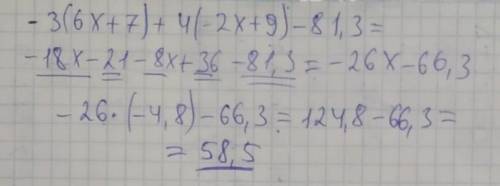 - 3(6x+7)+4(-2x+9)-81,3=
-18x-21-8x+36-81,3=-26x-66,3
-26·(-4,8)-66,3=124,8-66,3=
=58,5